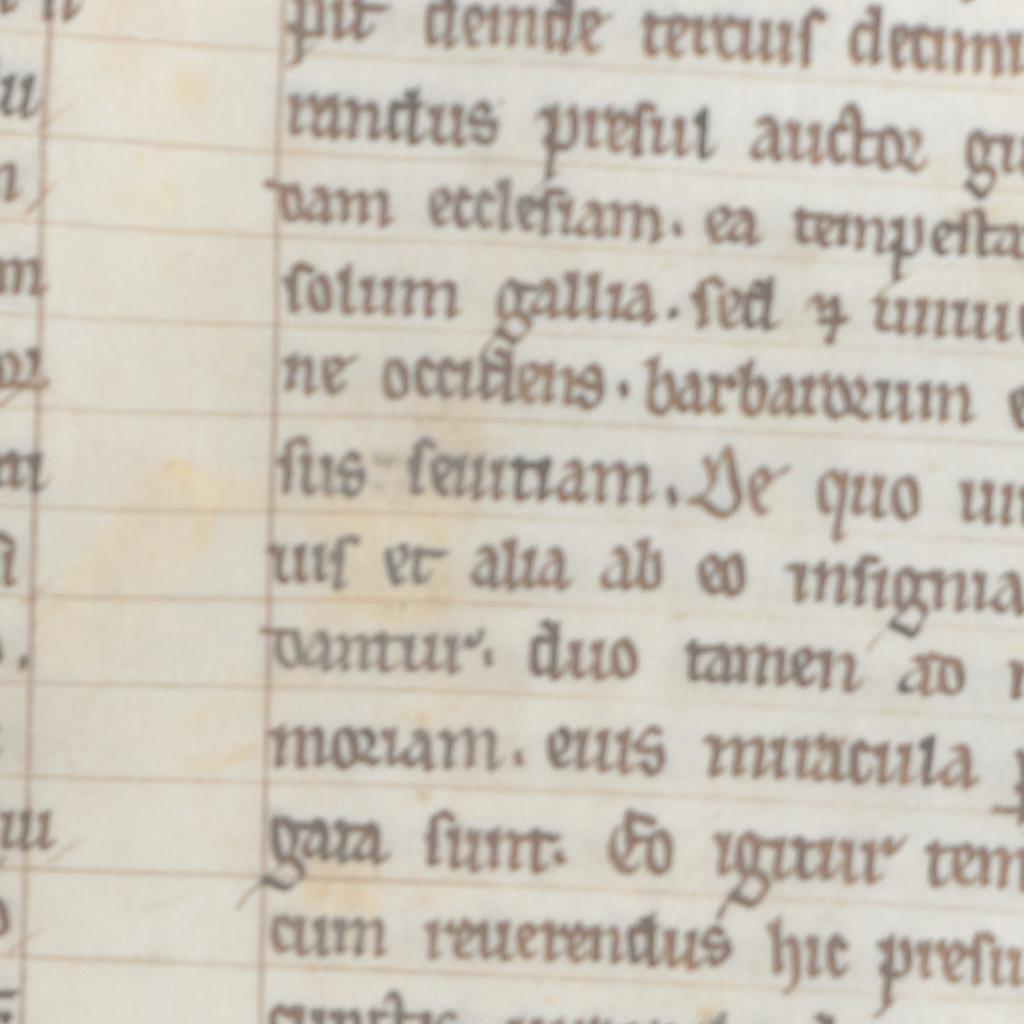 pit deinde tercius decimu
ranctus presul auctor gu
dam ecclesiam. ea tempesta
solum gallia. sed ⁊ uniu
ne occidens. barbarorum e
sus seuitiam. De quo un
uis et alia ab eo insignia
dantur. duo tamen ad
moriam. eius miracula
gata sunt. Eo igitur tem
cum reuerendus hic presu